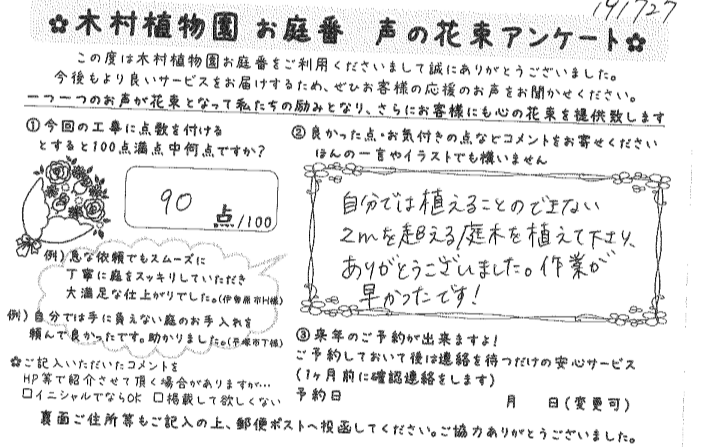 191727
✿木村植物園 お庭番 声の花束アンケート✿
この度は木村植物園お庭番をご利用くださいまして誠にありがとうございました。
今後もより良いサービスをお届けするため、ぜひお客様の応援のお声をお聞かせください。
一つ一つのお声が花束となって私たちの励みとなり、さらにお客様にも心の花束を提供致します
①今回の工事に点数を付ける
とすると100点満点中何点ですか?
90 点/100
例)急な依頼でもスムーズに
丁寧に庭をスッキリしていただき
大満足な仕上がりでした。(伊勢原市H様)
例)自分では手に負えない庭のお手入れを
頼んで良かったです。助かりました。(平塚市T様)
✿ご記入いただいたコメントを
HP等で紹介させて頂く場合がありますが…
□イニシャルでならOK □掲載して欲しくない
②良かった点・お気付きの点などコメントをお寄せください
ほんの一言やイラストでも構いません
自分では植えることのできない
2mを超える庭木を植えて下さり、
ありがとうございました。作業が
早かったです!
③来年のご予約が出来ますよ!
ご予約しておいて後は連絡を待つだけの安心サービス
(1ヶ月前に確認連絡をします)
予約日 月 日(変更可)
裏面ご住所等もご記入の上、郵便ポストへ投函してください。ご協力ありがとうございました。